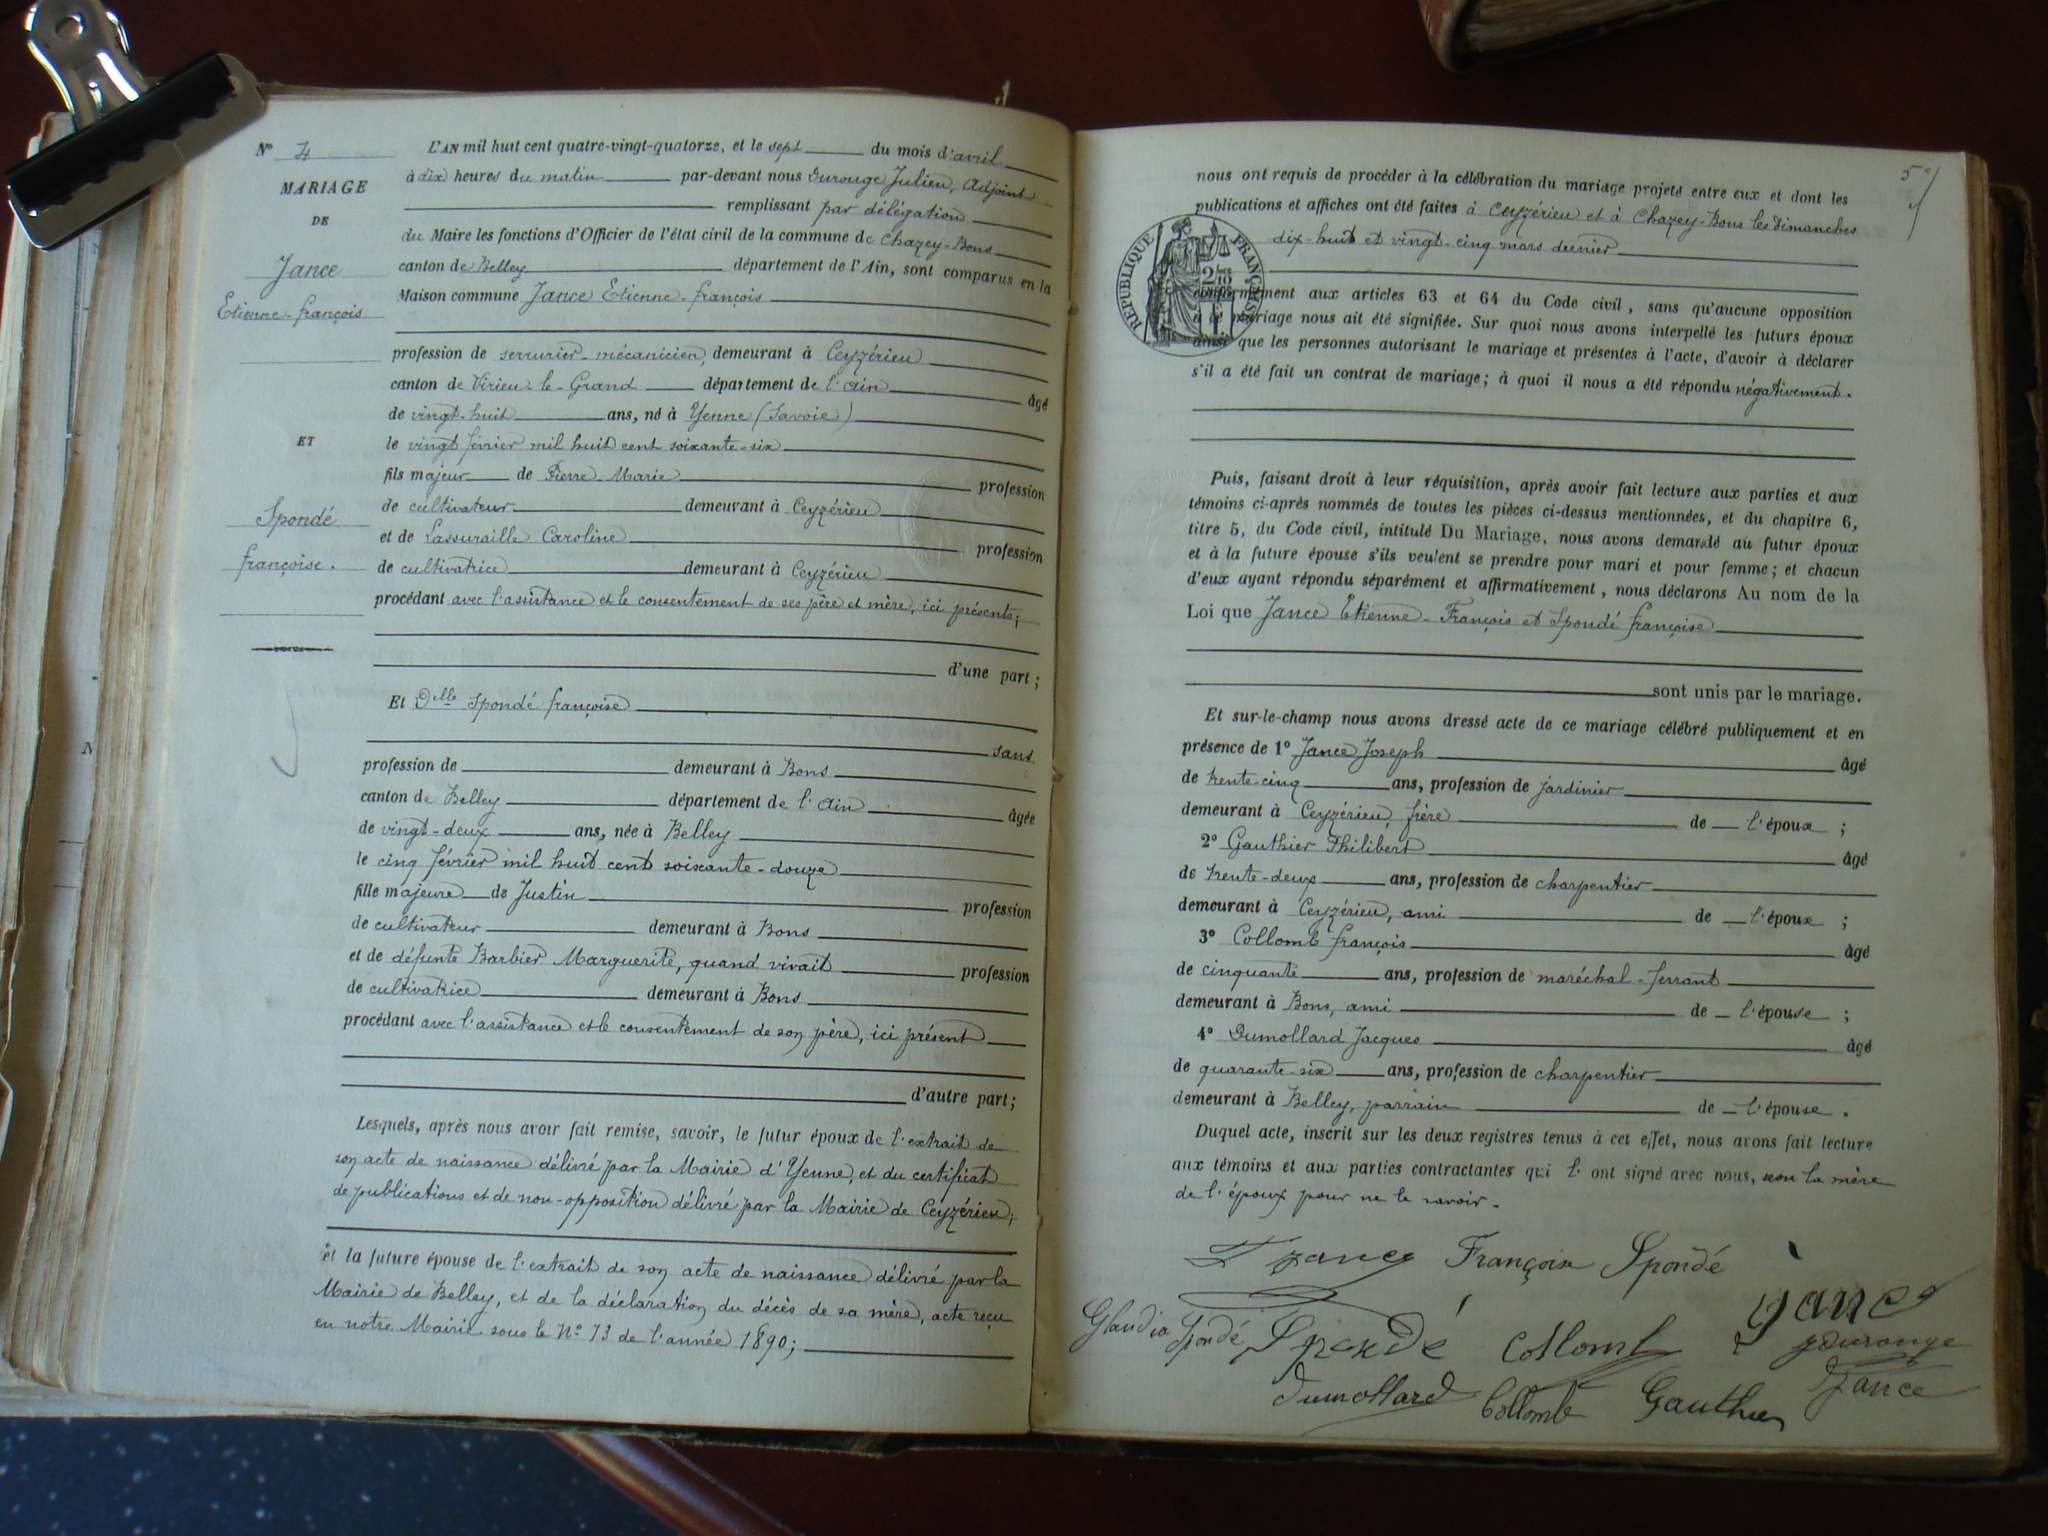 Nº 4
MARIAGE
DE
Jance
Etienne-françois
ET
Spondé
françoise.
L'AN mil huit cent quatre-vingt-quatorze, et le sept du mois d'avril
à dix heures du matin par-devant nous Durouge Julien, Adjoint
remplissant par délégation
du Maire les fonctions d'Officier de l'état civil de la commune de Chazey-Bons
canton de Belley département de l'Ain, sont comparus en la
Maison commune Jance Etienne-françois
profession de serrurier-mécanicien, demeurant à Ceyzérieu
canton de Virieu-le-Grand département de l'Ain âgé
de vingt-huit ans, né à Yenne (Savoie)
le vingt février mil huit cent soixante-six
fils majeur de Pierre-Marie profession
de cultivateur demeurant à Ceyzérieu
et de Lassuraille Caroline profession
de cultivatrice demeurant à Ceyzérieu
procédant avec l'assistance et le consentement de ses père et mère, ici présents;
d'une part;
Et Delle Spondé françoise
sans
profession de demeurant à Bons
canton de Belley département de l'Ain âgée
de vingt-deux ans, née à Belley
le cinq février mil huit cent soixante-douze
fille majeure de Justin profession
de cultivateur demeurant à Bons
et de défunte Barbier Marguerite, quand vivait profession
de cultivatrice demeurant à Bons
procédant avec l'assistance et le consentement de son père, ici présent
d'autre part;
Lesquels, après nous avoir fait remise, savoir, le futur époux de l'extrait de
son acte de naissance délivré par la Mairie d'Yenne, et du certificat
de publications et de non-opposition délivré par la Mairie de Ceyzérieu;
et la future épouse de l'extrait de son acte de naissance délivré par la
Mairie de Belley, et de la déclaration du décès de sa mère, acte reçu
en notre Mairie sous le Nº 13 de l'année 1890;
5
nous ont requis de procéder à la célébration du mariage projeté entre eux et dont les
publications et affiches ont été faites à Ceyzérieu et à Chazey-Bons les Dimanches
dix-huit et vingt-cinq mars dernier
RÉPUBLIQUE FRANÇAISE
conformément aux articles 63 et 64 du Code civil, sans qu'aucune opposition
à ce mariage nous ait été signifiée. Sur quoi nous avons interpellé les futurs époux
ainsi que les personnes autorisant le mariage et présentes à l'acte, d'avoir à déclarer
s'il a été fait un contrat de mariage; à quoi il nous a été répondu négativement.
Puis, faisant droit à leur réquisition, après avoir fait lecture aux parties et aux
témoins ci-après nommés de toutes les pièces ci-dessus mentionnées, et du chapitre 6,
titre 5, du Code civil, intitulé Du Mariage, nous avons demandé au futur époux
et à la future épouse s'ils veulent se prendre pour mari et pour femme; et chacun
d'eux ayant répondu séparément et affirmativement, nous déclarons Au nom de la
Loi que Jance Etienne-François et Spondé françoise
sont unis par le mariage.
Et sur-le-champ nous avons dressé acte de ce mariage célébré publiquement et en
présence de 1º Jance Joseph âgé
de trente-cinq ans, profession de jardinier
demeurant à Ceyzérieu, frère de l'époux;
2º Gauthier Philibert âgé
de trente-deux ans, profession de charpentier
demeurant à Ceyzérieu, ami de l'époux;
3º Collomb françois âgé
de cinquante ans, profession de maréchal-ferrant
demeurant à Bons, ami de l'épouse;
4º Dumollard Jacques âgé
de quarante-six ans, profession de charpentier
demeurant à Belley, parrain de l'épouse.
Duquel acte, inscrit sur les deux registres tenus à cet effet, nous avons fait lecture
aux témoins et aux parties contractantes qui l'ont signé avec nous, non la mère
de l'époux pour ne le savoir.
Jance Spondé
Spondé Spondé Collomb Jance
Durouge
Dumollard Collomb Gauthier Jance